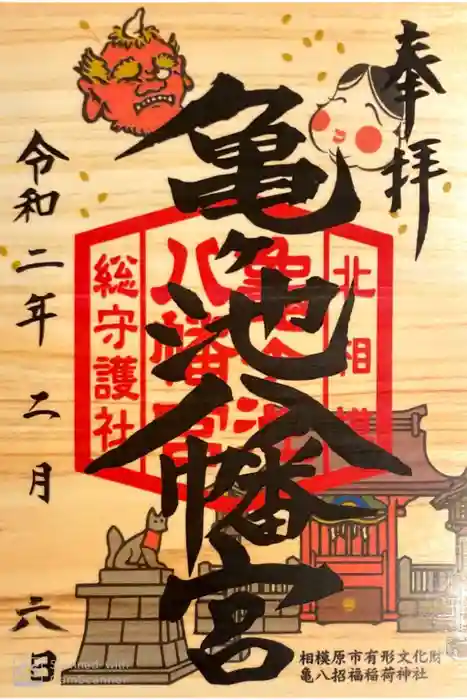 奉拝
亀ヶ池八幡宮
北相模
亀ヶ池
八幡宮
総守護社
令和二年二月六日
相模原市有形文化財
亀八招福稲荷神社
Scanned with
CamScanner